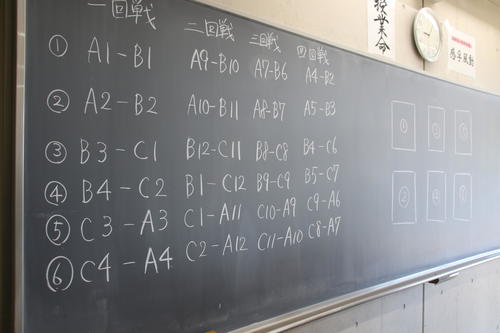 一回戦 二回戦 三回戦 四回戦
① A1-B1 A9-B10 A7-B6 A4-B2
② A2-B2 A10-B11 A8-B7 A5-B3
③ B3-C1 B12-C11 B8-C8 B4-C6
④ B4-C2 B1-C12 B9-C9 B5-C7
⑤ C3-A3 C1-A11 C10-A9 C9-A6
⑥ C4-A4 C2-A12 C11-A10 C8-A7
授業命